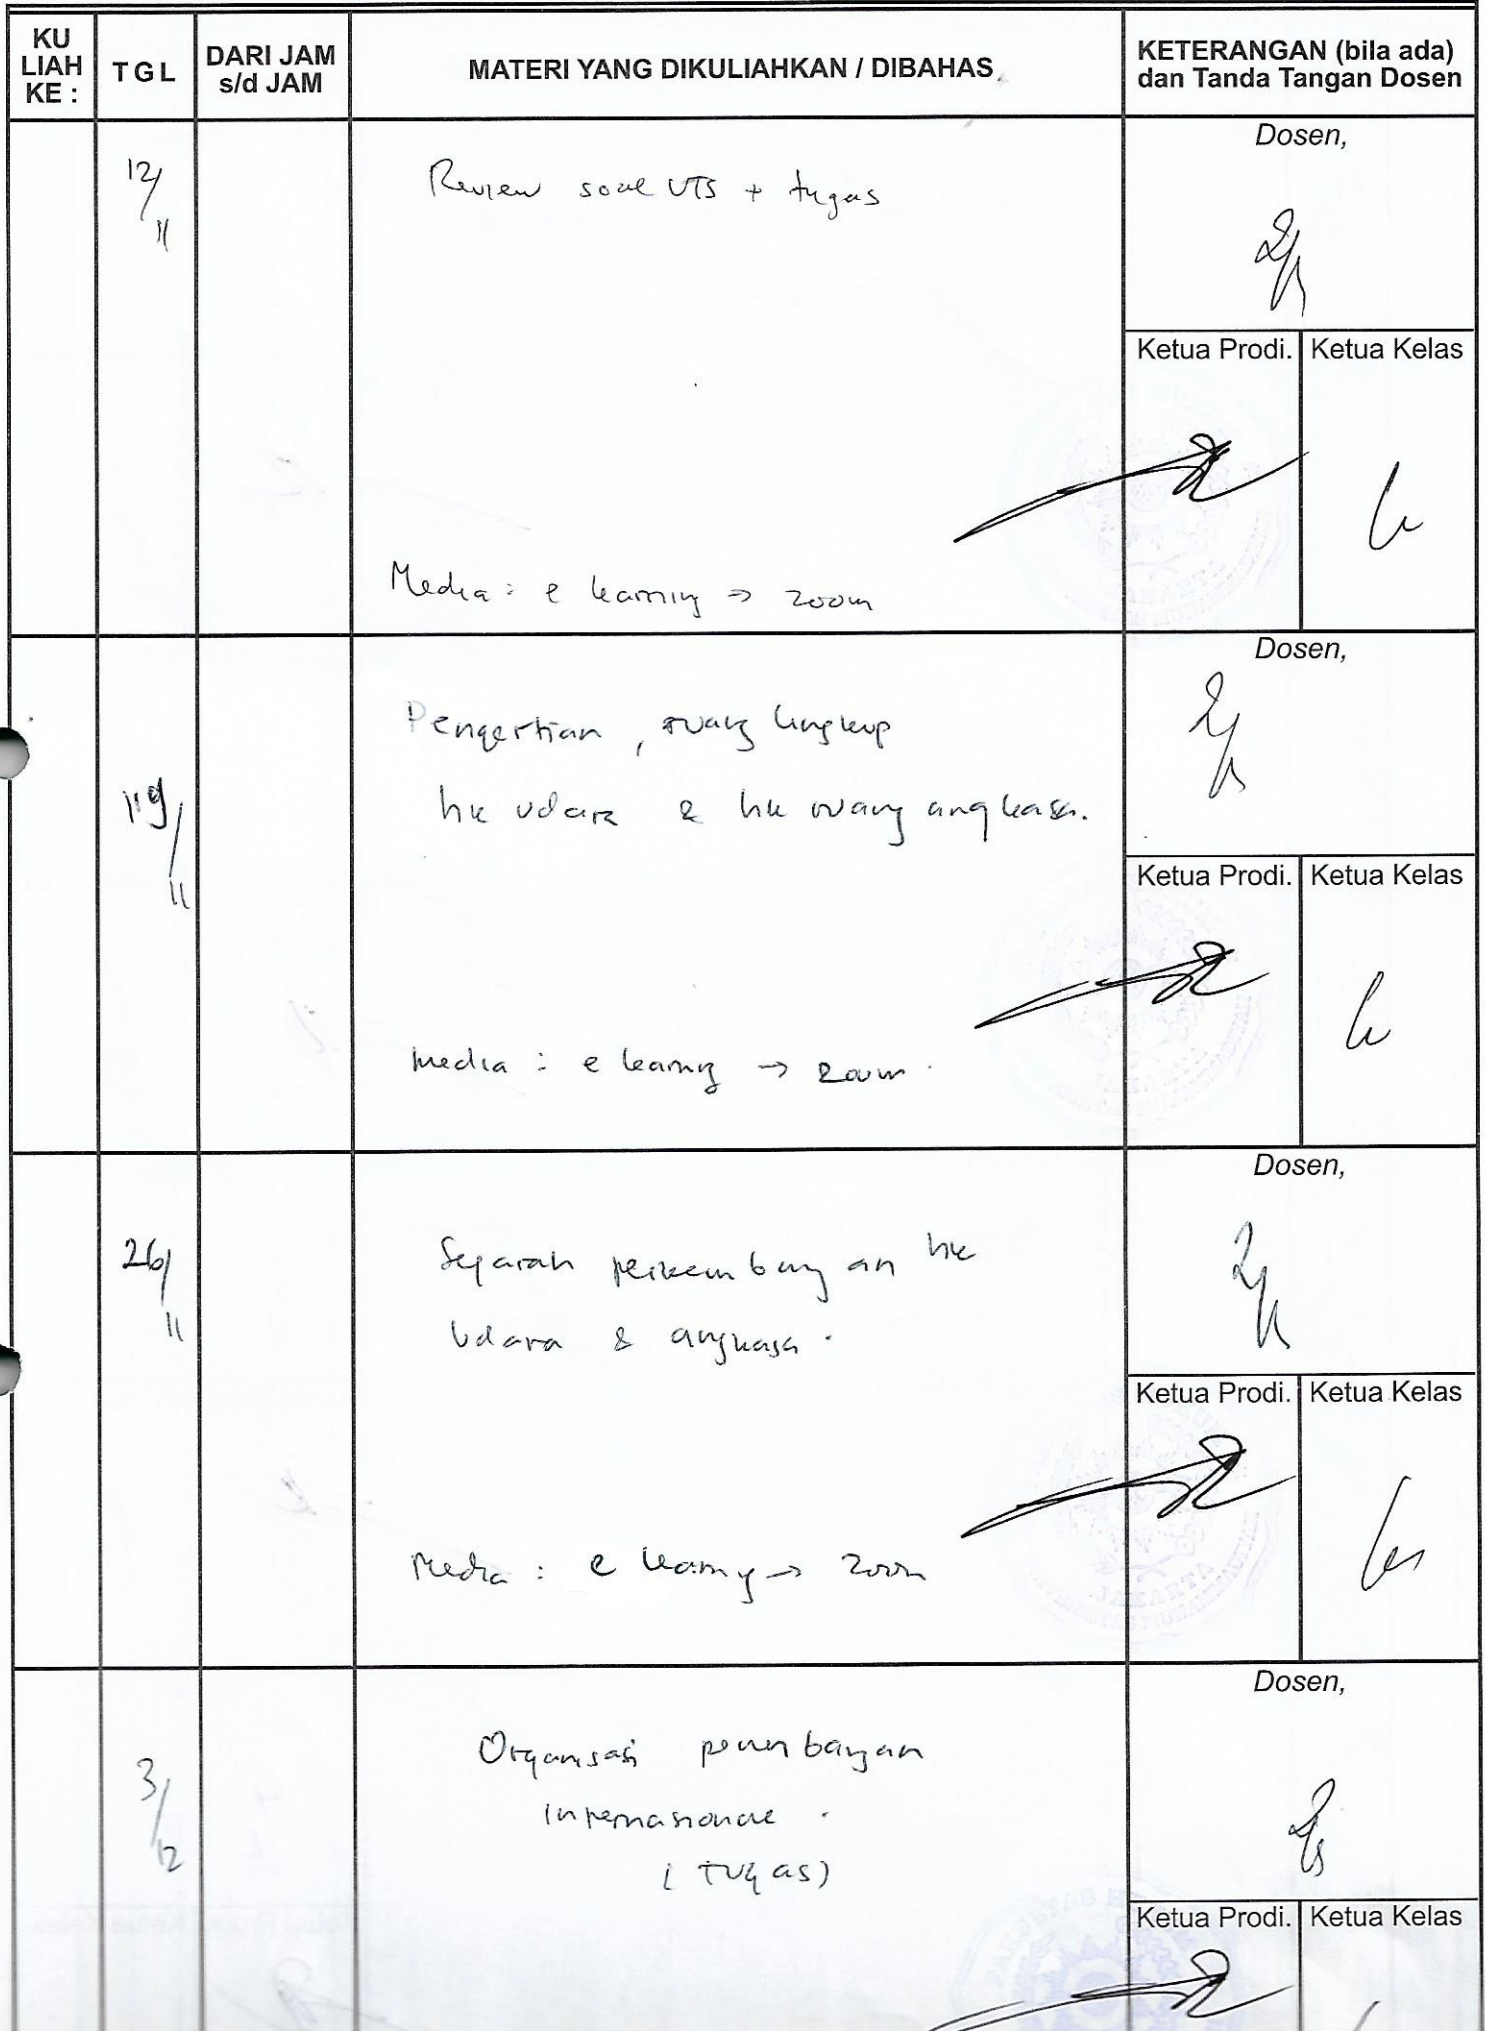 KU LIAH KE :
TGL
DARI JAM s/d JAM
MATERI YANG DIKULIAHKAN / DIBAHAS
KETERANGAN (bila ada) dan Tanda Tangan Dosen
12/11
Review soal UTS + tugas
Media : e learning → zoom
Dosen,
Ketua Prodi.
Ketua Kelas
19/11
Pengertian , ruang lingkup
hk udara & hk ruang angkasa.
media : e learning → zoom.
Dosen,
Ketua Prodi.
Ketua Kelas
26/11
Sejarah perkembangan hk
Udara & angkasa .
Media : e learning → zoom
Dosen,
Ketua Prodi.
Ketua Kelas
3/12
Organisasi penerbangan
Internasional .
(TUGAS)
Dosen,
Ketua Prodi.
Ketua Kelas